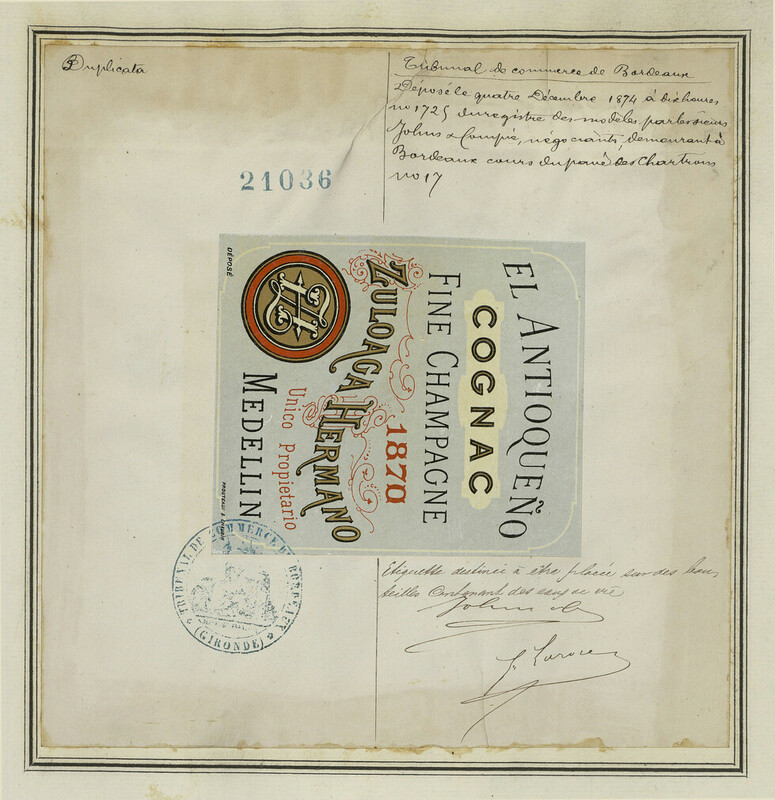 Duplicata
Tribunal de commerce de Bordeaux
Déposé le quatre Décembre 1874 à dix heures
no 1725 du registre des modèles par les sieurs
Johns & Compie, négociants, demeurant à
Bordeaux cours du pavé des Chartrons
no 17
21036
EL ANTIOQUEÑO
COGNAC
FINE CHAMPAGNE
1870
ZULOAGA HERMANO
Unico Propietario
MEDELLIN
DÉPOSÉ
Etiquette destinée à être placée sur des bou
teilles contenant des eaux de vie
TRIBUNAL DE COMMERCE DE BORDEAUX
(GIRONDE)